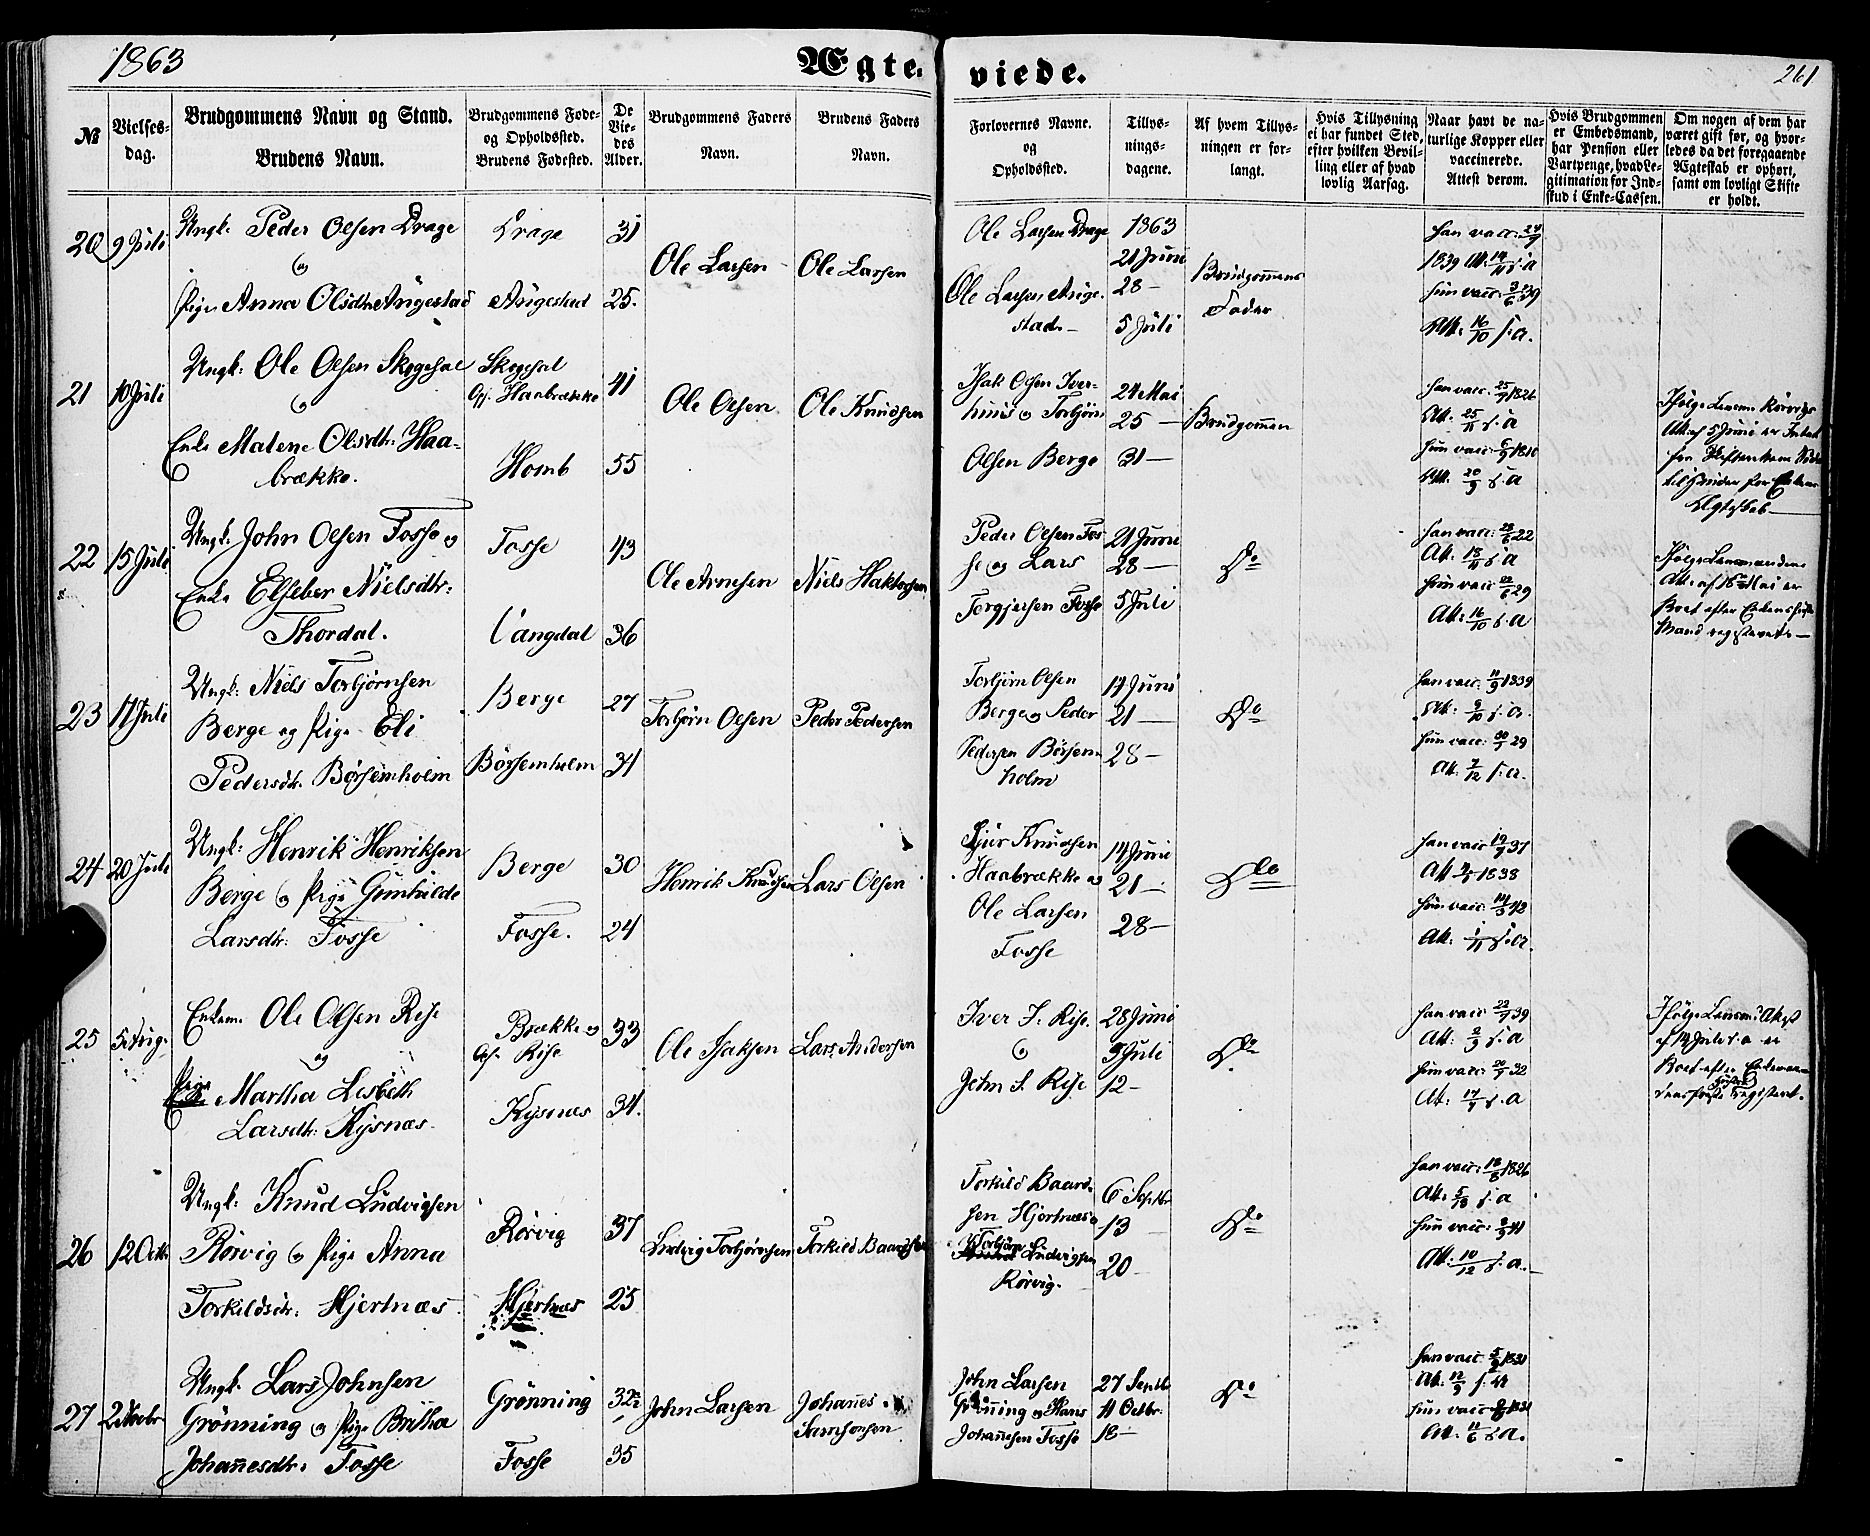 1863
Ægte-
viede.
261
№
Vielses-
dag.
Brudgommens Navn og Stand.
Brudens Navn.
Brudgommens Føde-
og Opholdssted.
Brudens Fødested.
De
Vie-
des
Alder.
Brudgommens Faders
Navn.
Brudens Faders
Navn.
Forlovernes Navne.
og
Opholdssted.
Tillys-
nings-
dagene.
Af hvem Tillys-
ningen er for-
langt.
Hvis Tillysning
ei har fundet Sted,
efter hvilken Bevil-
ling eller af hvad
lovlig Aarsag.
Naar havt de na-
turlige Kopper eller
vaccinerede.
Attest derom.
Hvis Brudgommen
er Embedsmand,
har Pension eller
Vartpenge, hvad Le-
gitimation for Ind-
skud i Enke-Cassen.
Om nogen af dem har
været gift før, og hvor-
ledes da det foregaaende
Ægteskab er ophørt,
samt om lovligt Skifte
er holdt.
20
9 Juli
Ungk: Peder Olsen Drage
og
Pige Anna Olsdtr Augestad
Drage
Augestad
31
25.
Ole Larsen
Ole Larsen
Ole Larsen Drage
Ole Larsen Auge-
stad
1863
21 Juni
28 —
5 Juli
Brudgommens
Fader
Han vacc: 24/9
1839 Att: 14/11 f. a
Hun vacc: 3/6 39
Att: 16/10 f. a.
21
10 Juli
Ungk: Ole Olsen Skogsal
og
Enke Malene Olsdtr: Haa-
brække.
Opj. Haabrække
Homb
41
55
Ole Olsen
Ole Knudsen
Isak Olsen Iver-
huus og Torbjørn
Olsen Berge
24 Mai
25 —
31 —
Brudgommen
Han vacc: 25/9 1826
Att: 25/11 f. a
Hun vacc: 6/9 1810
Att: 20/9 f. a
Ægteskab —
22
15 Juli
Ungk: John Olsen Fosse og
Enke Elseber Nielsdtr:
Thordal.
Fosse
Vangdal
43
36
Ole Arnesen
Niels Haktorsen
Peder Olsen Fos-
se og Lars
Torgjersen Fosse
21 Juni
28 —
5 Juli
Do
Han vacc: 28/6 22
Att: 18/11 f. a
Hun vacc 22/6 29
Att: 16/10 f. a
Ifølge Lensmandens
Att: af 18 Mai er
Boet efter Enkens første
Mand registeret —
23
17 Juli
Ungk: Niels Torbjørnsen
Berge og Pige Eli
Pedersdtr. Børsemholm
Berge
Børsemholm
27
34
Torbjørn Olsen
Peder Pedersen
Torbjørn Olsen
Berge og Peder
Pedersen Børsem-
holm
14 Juni
21 —
28 —
Do
Han vacc: 11/9 1839
Att: 9/10 f. a.
Hun vacc: 30/7 29
Att: 7/12 f. a.
24
20 Juli
Ungk: Henrik Henriksen
Berge og Pige Gunhilde
Larsdtr: Fosse
Berge
Fosse.
30
24
Henrik Knudsen
Lars Olsen
Sjur Knudsen
Haabrække og
Ole Larsen
Fosse
14 Juni
21 —
28 —
Do
Han vacc 19/7 37
1838
Hun vacc: 14/5 42
Att: 1/11 f. a.
25
5 Aug.
Enkem. Ole Olsen Rise
og
Pige
Martha Lisbeth
Larsdtr: Kysnæs.
Brække og
Opj. Rise
Kysnæs
33
34.
Ole Isaksen
Lars Andersen
Iver I. Rise.
og
John I. Rise
28 Juni
5 Juli
12 —
Do
Han vacc 22/7 39
Att: 2/3 f. a
Hun vacc: 20/7 32
Att: 17/9 f. a
Ifølge Lensm: Attest
af 14 Juli f. a er
Boet efter Enkeman-
dens første Hustru registeret.
26
12 Octb.
Ungk: Knud Ludvigsen
Rørvig og Pige Anna
Torkildsdtr: Hjertnæs
Rørvig
Hjertnæs
37
23
Ludvig Torbjørnsen
Torkild Baardsen
Torkild Baard-
sen Hjertnæs og
Torbjørn Ludvigsen
Rørvig.
6 Septbr
13 —
20
Do
Han vacc: 18/8 1826
Att: 5/10 f. a
Hun vacc: 2/9 41
Att: 10/12 f. a.
27
2 Novbr
Ungk. Lars Johnsen
Grønning og Pige Britha
Johannesdtr: Fosse
Grønning
Fosse
32½
35
John Larsen
Johannes
Samsonsen
John Larsen
Grønning og Hans
Johannesen Fosse
27 Septb
11 Octbr.
18 —
Do
Han vacc: 5/9 1831
Att: 12/9 f. a
Hun vacc 1831
Att: 11/6 f. a.